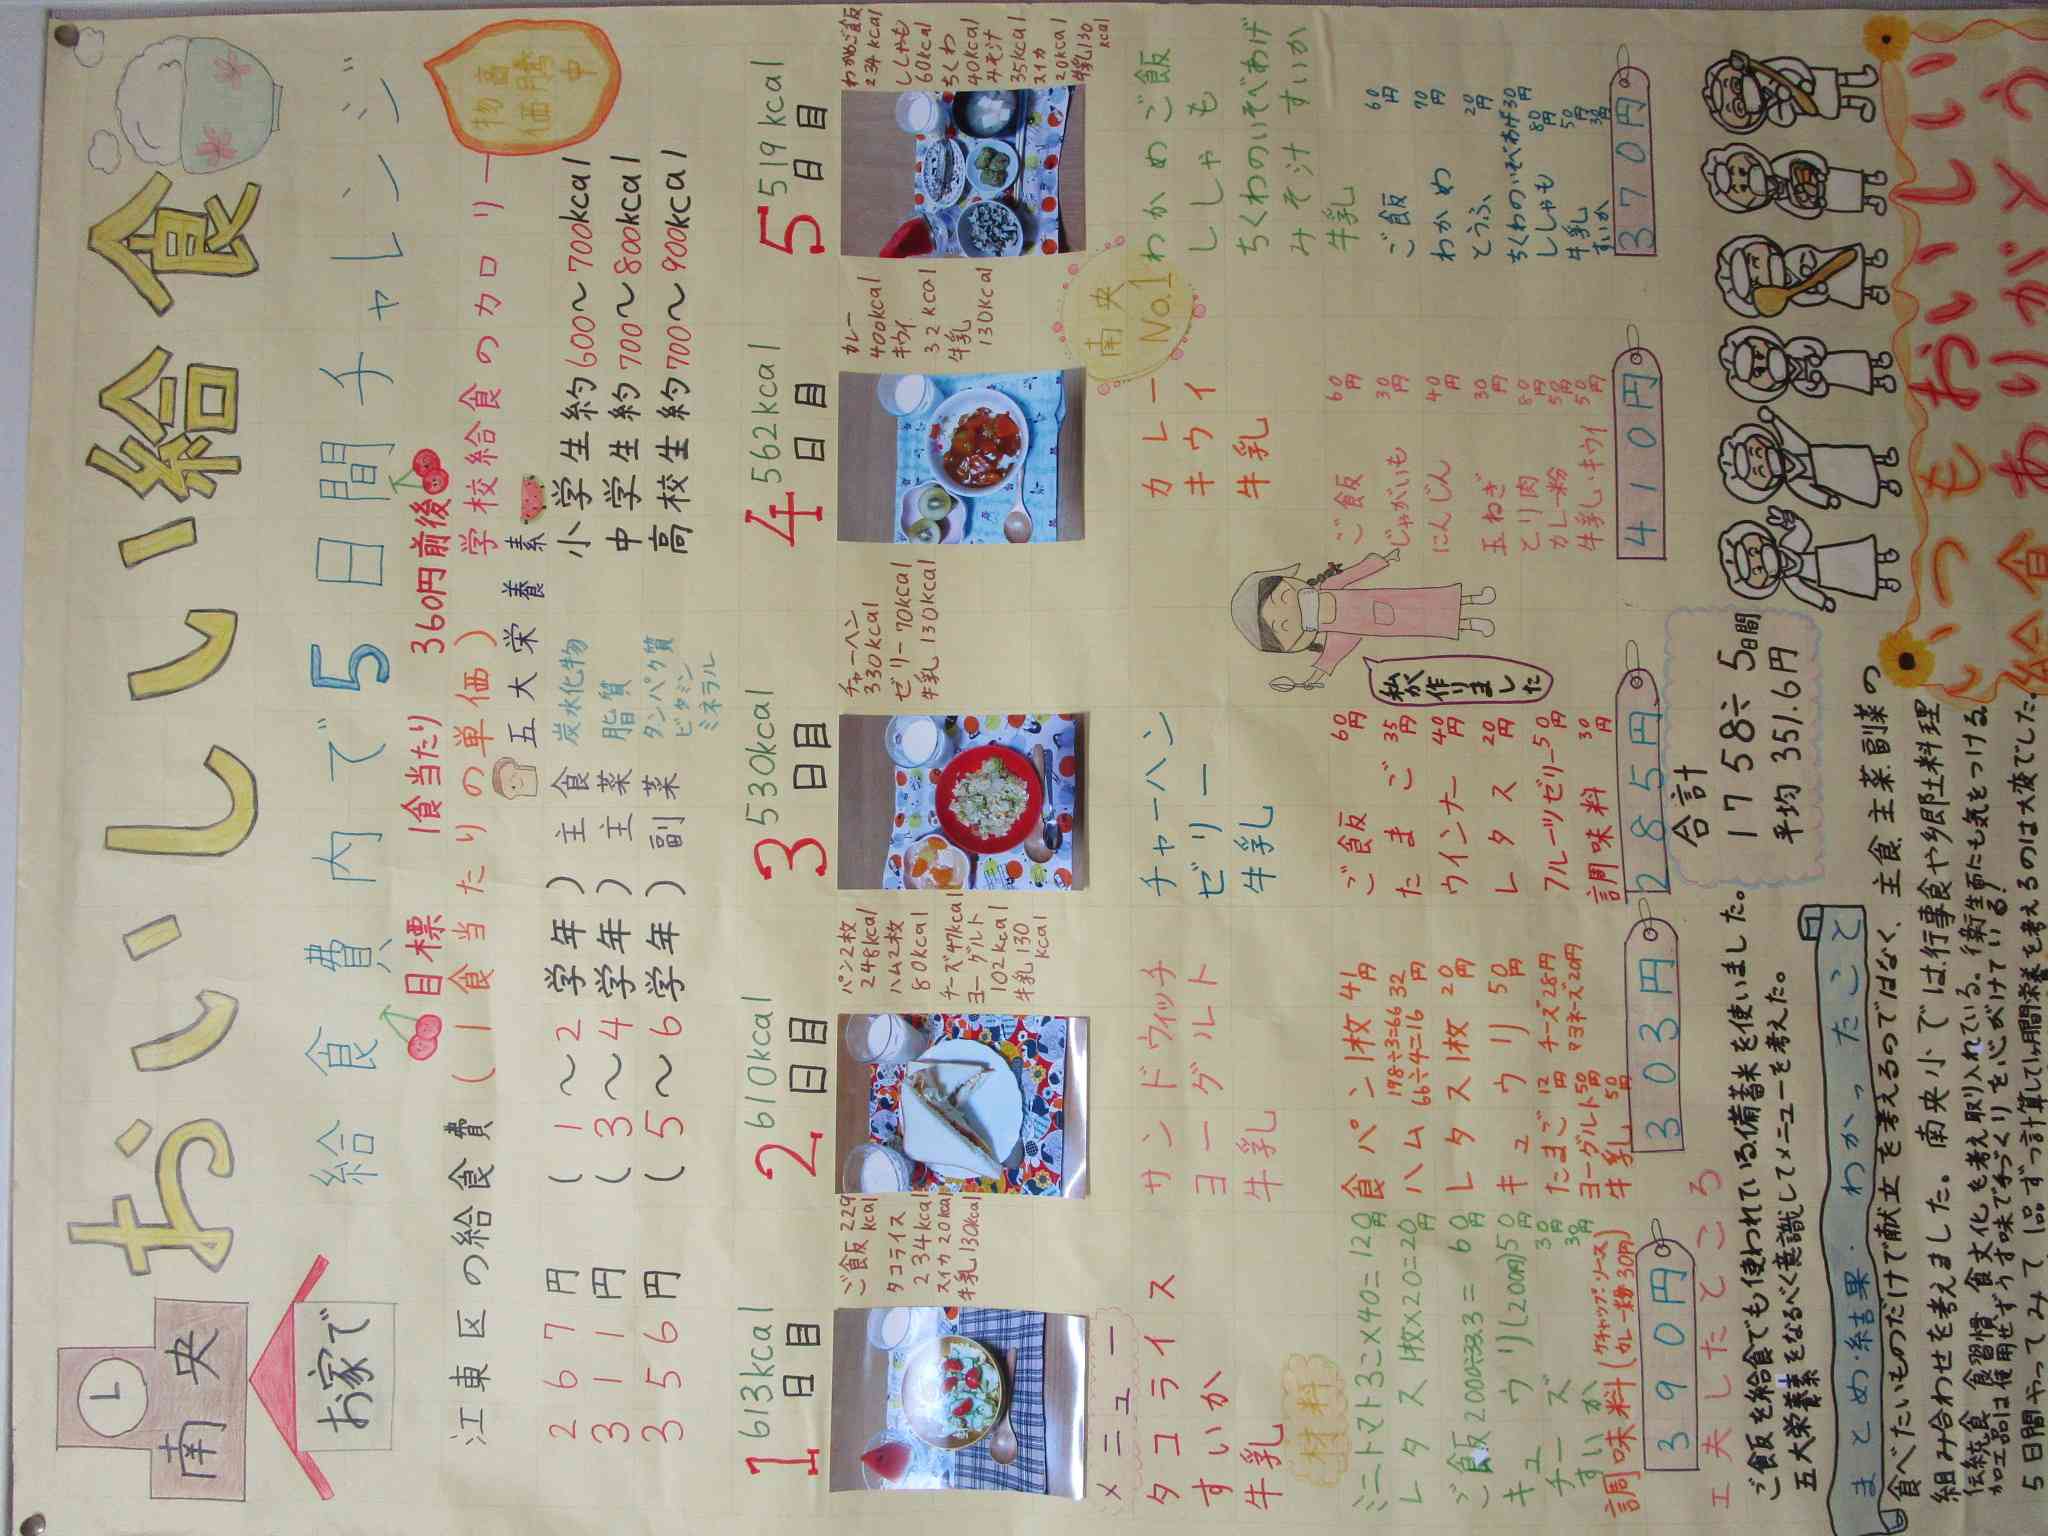 南央
お家で
おいしい給食
給食費内で5日間チャレンジ
目標 1食当たり 360円前後
江東区の給食費(1食当たりの単価)
267円(1〜2学年)
311円(3〜4学年)
356円(5〜6学年)
五大栄養素
主食 炭水化物
主菜 脂質
副菜 タンパク質
ビタミン
ミネラル
学校給食のカロリー
小学生 約600〜700kcal
中学生 約700〜800kcal
高校生 約700〜900kcal
物価高騰中
1日目 613kcal
ご飯229kcal
タコライス
234kcal
スイカ20kcal
牛乳130kcal
2日目 610kcal
パン2枚
248kcal
ハム2枚
80kcal
チーズ47kcal
ヨーグルト
102kcal
牛乳130kcal
3日目 530kcal
チャーハン
330kcal
ゼリー70kcal
牛乳130kcal
4日目 562kcal
カレー
400kcal
キウイ
32kcal
牛乳
130kcal
5日目 519kcal
わかめご飯
234kcal
ししゃも
60kcal
ちくわ
40kcal
みそ汁
35kcal
スイカ
20kcal
牛乳130kcal
メニュー
タコライス
すいか
牛乳
サンドウィッチ
ヨーグルト
牛乳
チャーハン
ゼリー
牛乳
南央No.1
カレー
キウイ
牛乳
わかめご飯
ししゃも
ちくわのいそべあげ
みそ汁 すいか
牛乳
材料
ミニトマト3こ×40=120円
レタス1枚×20=20円
ご飯2000÷33.3=60円
キュウリ(200円)50円
チーズ 30円
すいか 30円
調味料(ケチャップ・ソース カレー粉30円)
390円
食パン1枚 41円
198÷3=66
ハム 66÷4=16 32円
レタス1枚 20円
キュウリ 50円
たまご 12円 チーズ28円
ヨーグルト50円 マヨネーズ20円
牛乳 50円
303円
ご飯 60円
たまご 35円
ウインナー 40円
レタス 20円
フルーツゼリー50円
調味料 30円
285円
私が作りました
ご飯 60円
じゃがいも 30円
にんじん 40円
玉ねぎ 30円
とり肉 80円
カレー粉 50円
牛乳・キウイ 50円
410円
ご飯 60円
わかめ 70円
とうふ 20円
ちくわのいそべあげ30円
ししゃも 80円
牛乳 50円
すいか 30円
370円
工夫したところ
ご飯を給食でも使われている備蓄米を使いました。
五大栄養素をなるべく意識してメニューを考えた。
合計
1758÷5日間
平均 351.6円
まとめ・結果・わかったこと
食べたいものだけで献立を考えるのではなく、主食主菜副菜の
組み合わせを考えました。南央小では行事食や郷土料理
伝統食 食習慣 食文化も考え取り入れている。衛生面にも気をつける
加工品は使用せずうす味で手づくりを心がけている!
5日間やってみて1品ずつ計算して1ヶ月間栄養を考えるのは大変でした。
いつもおいしい
給食ありがとう